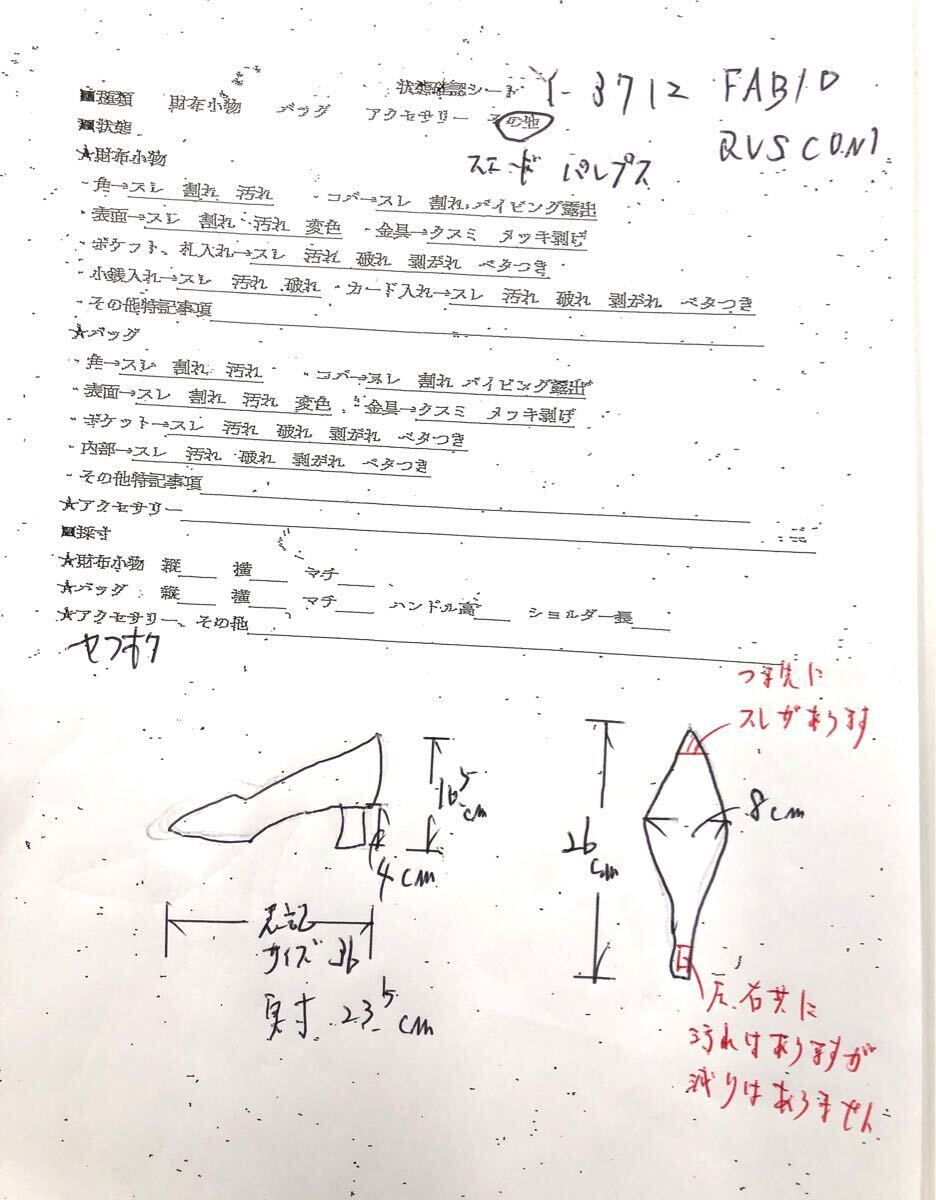 状態確認シート Y-3712 FABIO
RUSCONI
■種類 財布小物 バッグ アクセサリー その他
■状態
スエード パンプス
★財布小物
・角→スレ 割れ 汚れ ・コバ→スレ 割れ パイピング露出
・表面→スレ 割れ 汚れ 変色 ・金具→クスミ メッキ剥げ
・ポケット、札入れ→スレ 汚れ 破れ 剥がれ ベタつき
・小銭入れ→スレ 汚れ 破れ ・カード入れ→スレ 汚れ 破れ 剥がれ ベタつき
・その他特記事項
★バッグ
・角→スレ 割れ 汚れ ・コバ→スレ 割れ パイピング露出
・表面→スレ 割れ 汚れ 変色 ・金具→クスミ メッキ剥げ
・ポケット→スレ 汚れ 破れ 剥がれ ベタつき
・内部→スレ 汚れ 破れ 剥がれ ベタつき
・その他特記事項
★アクセサリー
■採寸
★財布小物 縦 横 マチ
★バッグ 縦 横 マチ ハンドル高 ショルダー長
★アクセサリー、その他
ヤフオク
つま先に
スレがあります
16.5cm
4cm
26cm
8cm
表記
サイズ 36
実寸 23.5cm
左、右共に
汚れはありますが
減りはありません